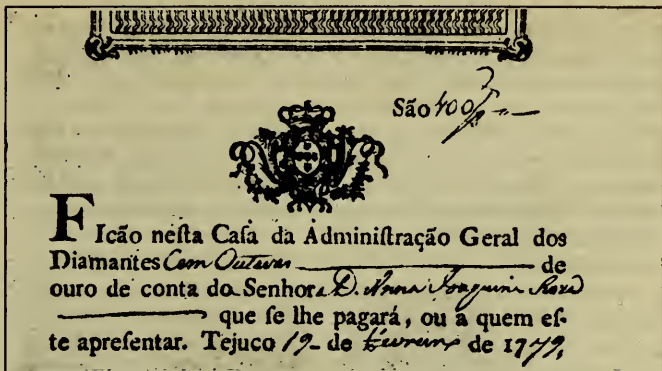 São 400
FIcão neſta Caſa da Adminiſtração Geral dos
Diamantes Cem Outavas de
ouro de conta do Senhora D. Anna Joaquina Roza
que ſe lhe pagará, ou a quem eſ-
te apreſentar. Tejuco 19 de Fevereiro de 1779,